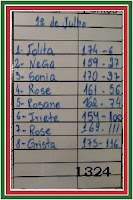 1º de Julho
1- Iolita 174-6
2- NeGa 159-27
3- Sonia 170-37
4- Rose 161-56
5- Rosane 162-74
6- Iriete 154-100
7- Rose 169-111
8- Crista 175-116
1.324